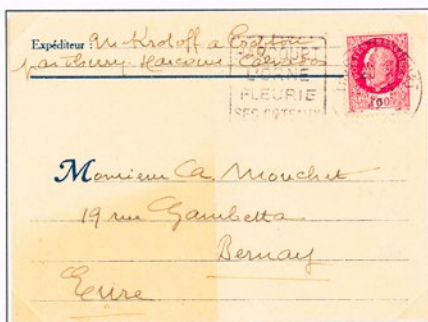 Expéditeur : M Kroloff à Croisilles
par Thury-Harcourt Calvados
HARCOURT
L'ORNE
FLEURIE
SES COTEAUX
1F50
Monsieur A. Mouchet
19 rue Gambetta
Bernay
Eure